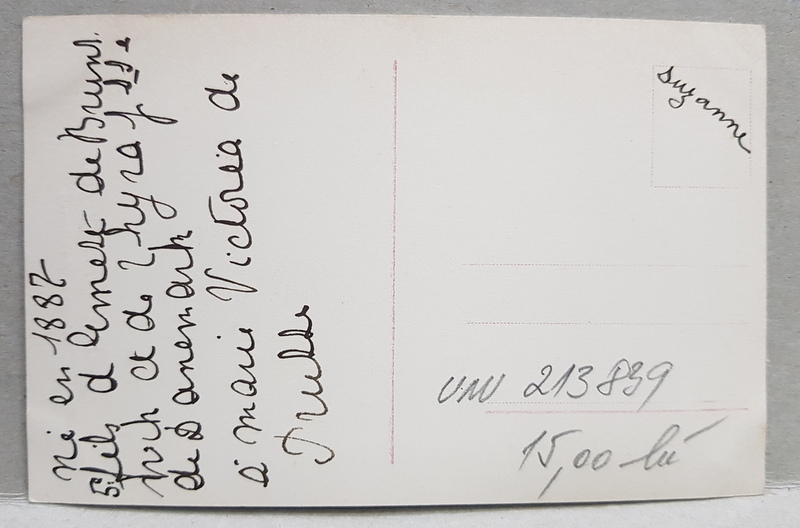 Né en 1887
5e fils d'Ernest de Bruns.
wich et de Thyra Psse
de Danemark
à marie Victoria de
Prusse
suzanne
213839
15,00 lei